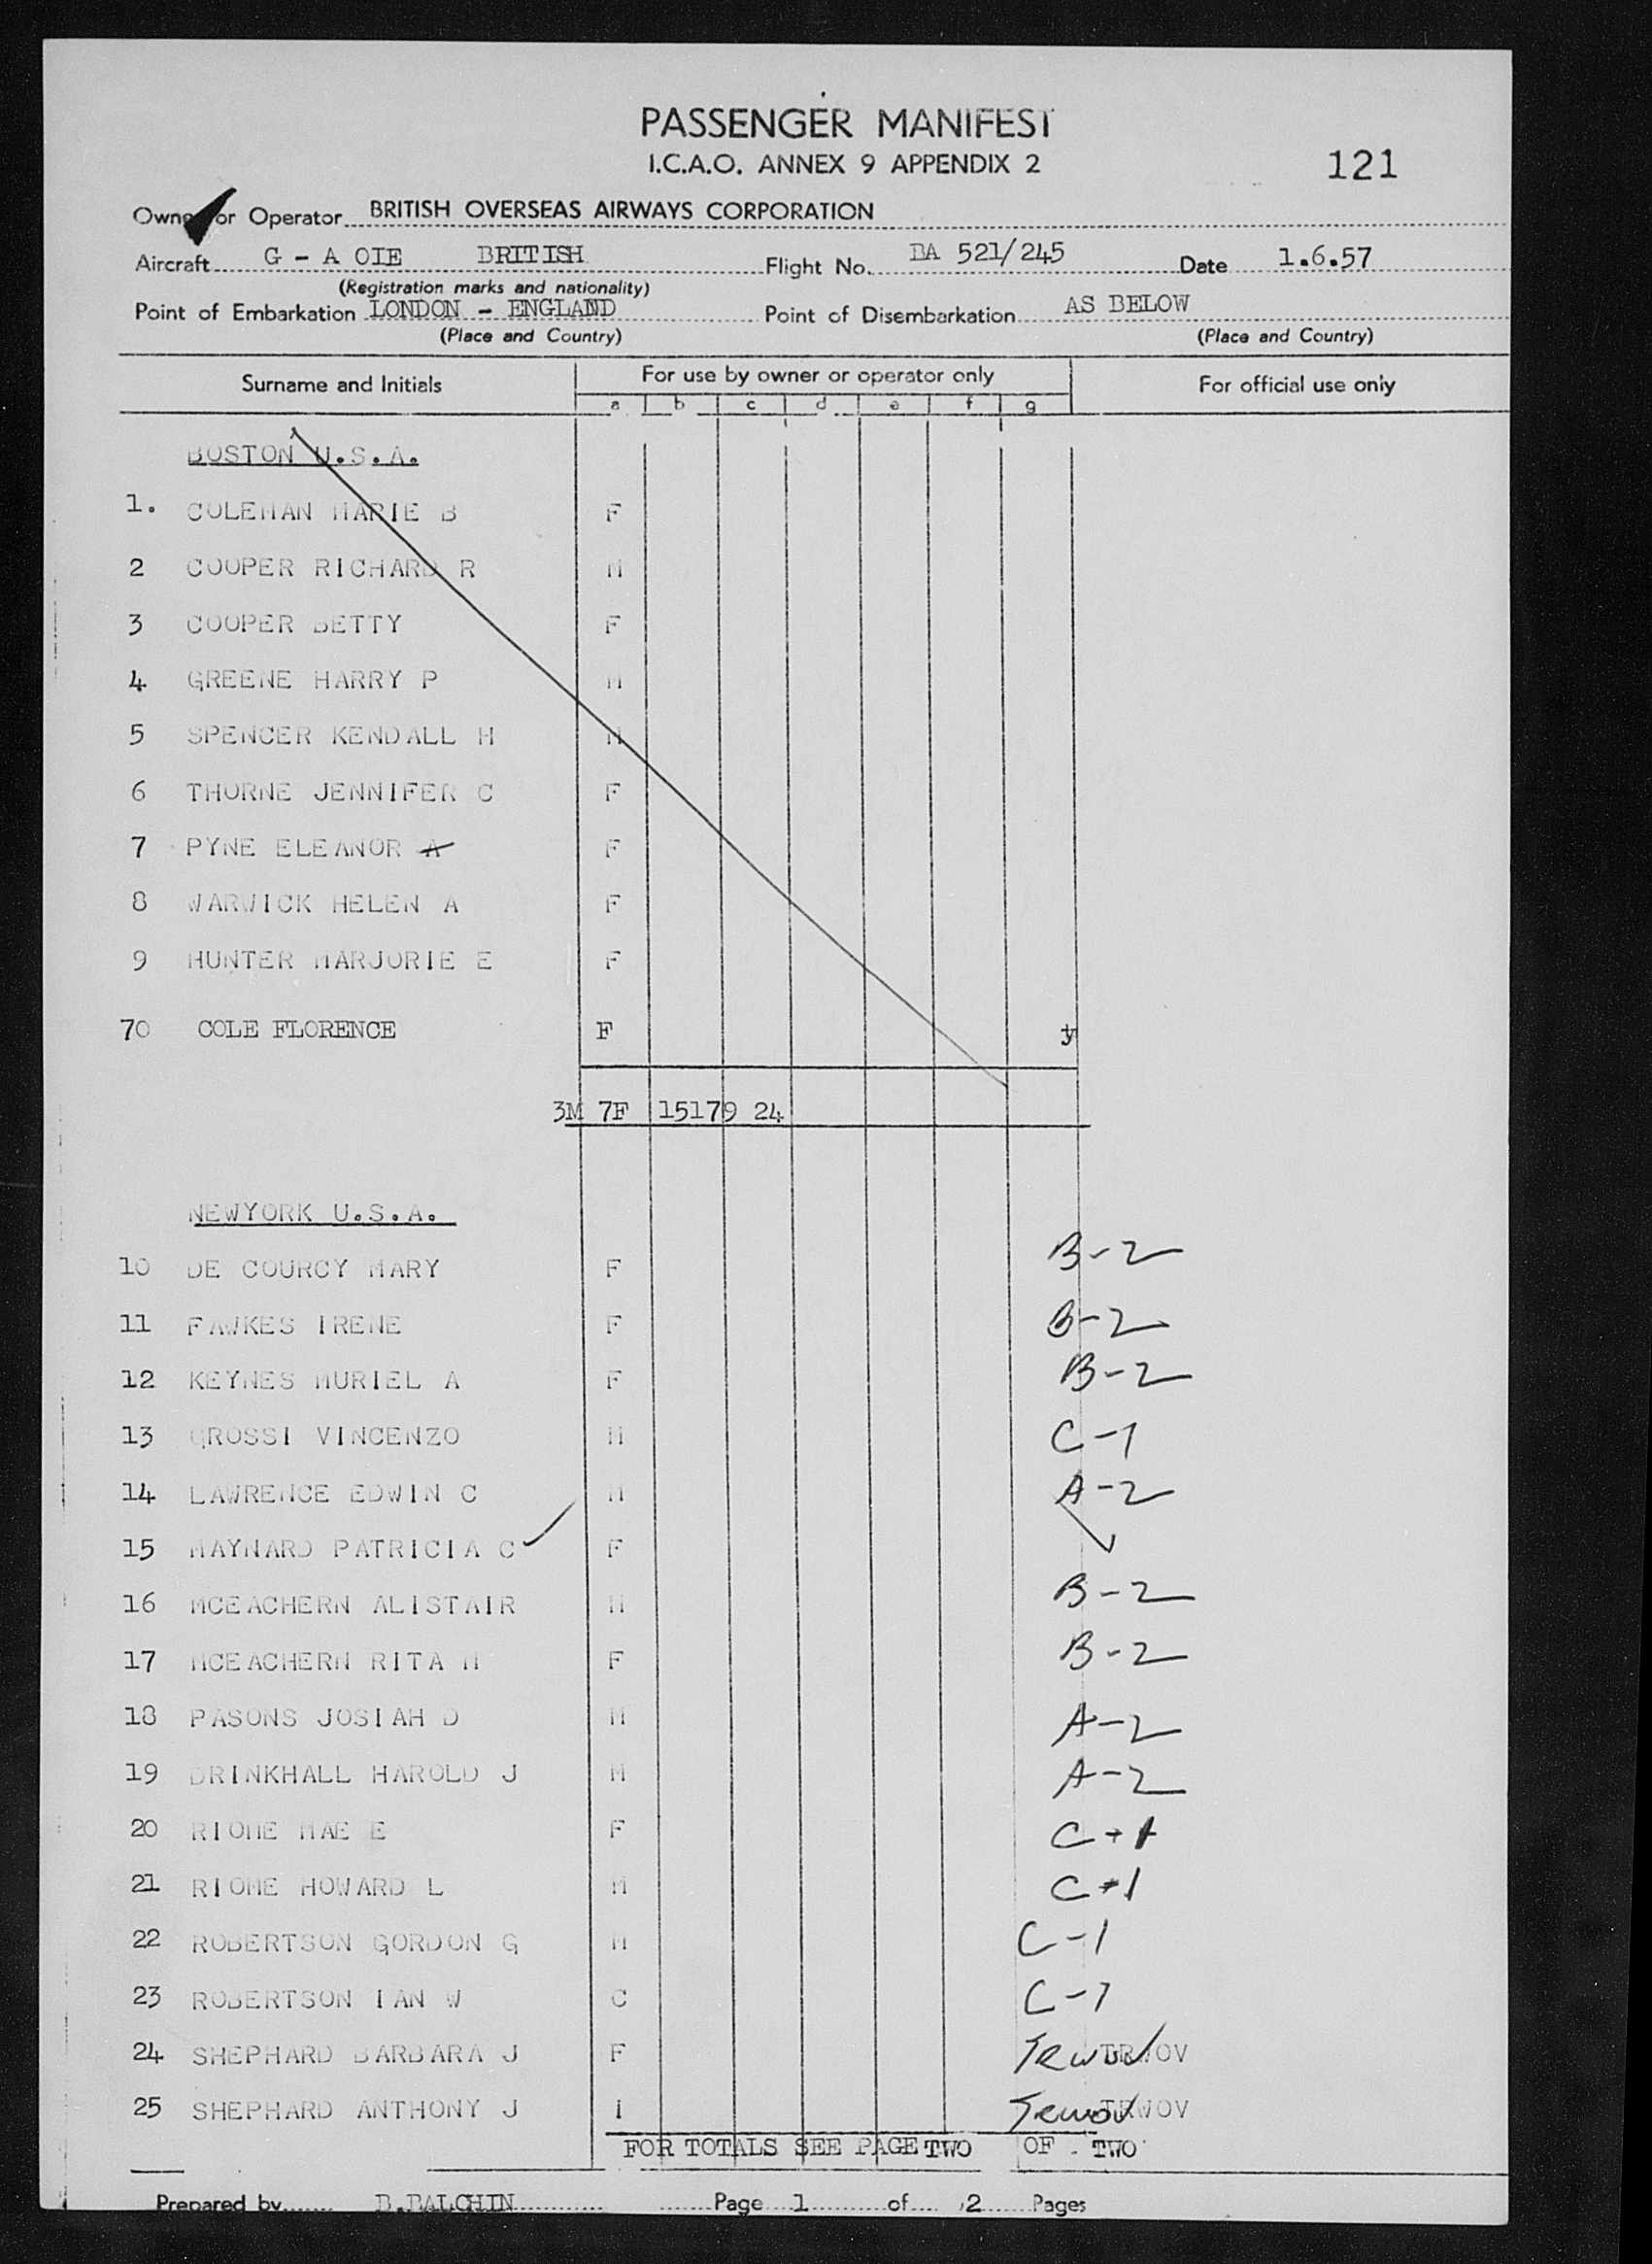 PASSENGER MANIFEST
I.C.A.O. ANNEX 9 APPENDIX 2
121
Owner or Operator BRITISH OVERSEAS AIRWAYS CORPORATION
Aircraft G - A OIE BRITISH Flight No. BA 521/245 Date 1.6.57
(Registration marks and nationality)
Point of Embarkation LONDON - ENGLAND Point of Disembarkation AS BELOW
(Place and Country) (Place and Country)
Surname and Initials For use by owner or operator only For official use only
a b c d e f g
BOSTON U.S.A.
1. COLEMAN MARIE B F
2 COOPER RICHARD R M
3 COOPER BETTY F
4 GREENE HARRY P M
5 SPENCER KENDALL H M
6 THORNE JENNIFER C F
7 PYNE ELEANOR A F
8 WARWICK HELEN A F
9 HUNTER MARJORIE E F
70 COLE FLORENCE F y
3M 7F 15179 24
NEWYORK U.S.A.
10 DE COURCY MARY F B-2
11 FAWKES IRENE F B-2
12 KEYNES MURIEL A F B-2
13 GROSSI VINCENZO M C-1
14 LAWRENCE EDWIN C M A-2
15 MAYNARD PATRICIA C F
16 MCEACHERN ALISTAIR M B-2
17 MCEACHERN RITA M F B-2
18 PASONS JOSIAH D M A-2
19 DRINKHALL HAROLD J M A-2
20 RIOME MAE E F C-1
21 RIOME HOWARD L M C-1
22 ROBERTSON GORDON G M C-1
23 ROBERTSON IAN W C C-1
24 SHEPHARD BARBARA J F TRWOV TRWOV
25 SHEPHARD ANTHONY J I TRWOV TRWOV
FOR TOTALS SEE PAGE TWO OF TWO
Prepared by B.BALCHIN Page 1 of 2 Pages